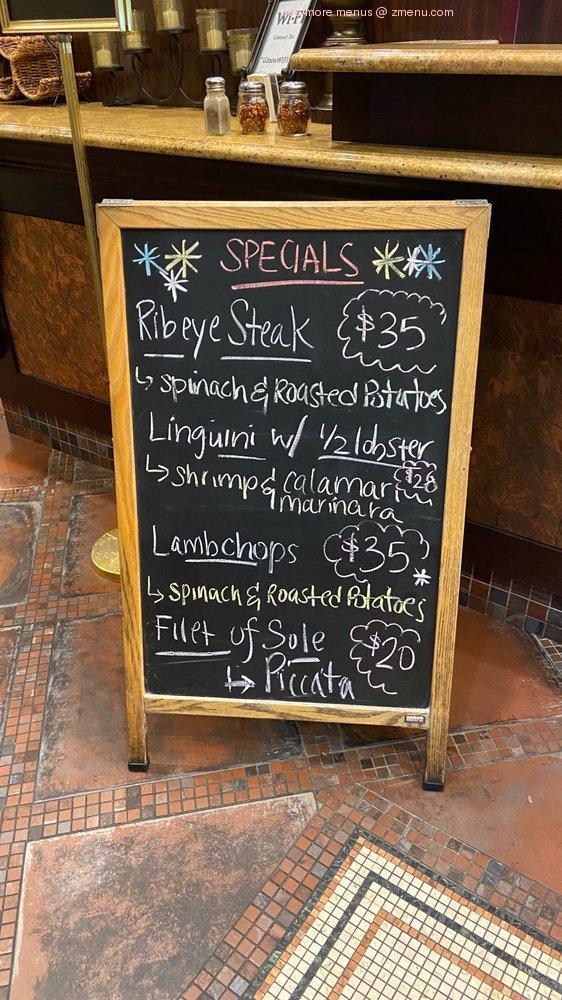 more menus @ zmenu.com
WI-FI
Connect To:
SPECIALS
Ribeye Steak $35
↳ spinach & Roasted Potatoes
Linguini w/ 1/2 lobster
↳ shrimp & calamari $28
marinara
Lambchops $35
↳ spinach & Roasted Potatoes
Filet of Sole $20
↳ Piccata